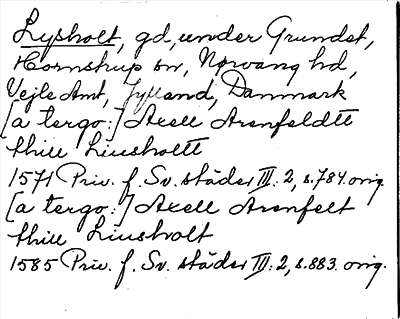 Lysholt, gd, under Grundet,
Hornstrup sn, Nørvang hd,
Vejle Amt, Jylland, Danmark
[a tergo:] Axell Arenfeldtt
thill Liusholtt
1571 Priv. f. Sv. städer III: 2, s. 784. orig.
[a tergo:] Axell Arenfelt
thill Liusholt
1585 Priv. f. Sv. städer III: 2, s. 883. orig.